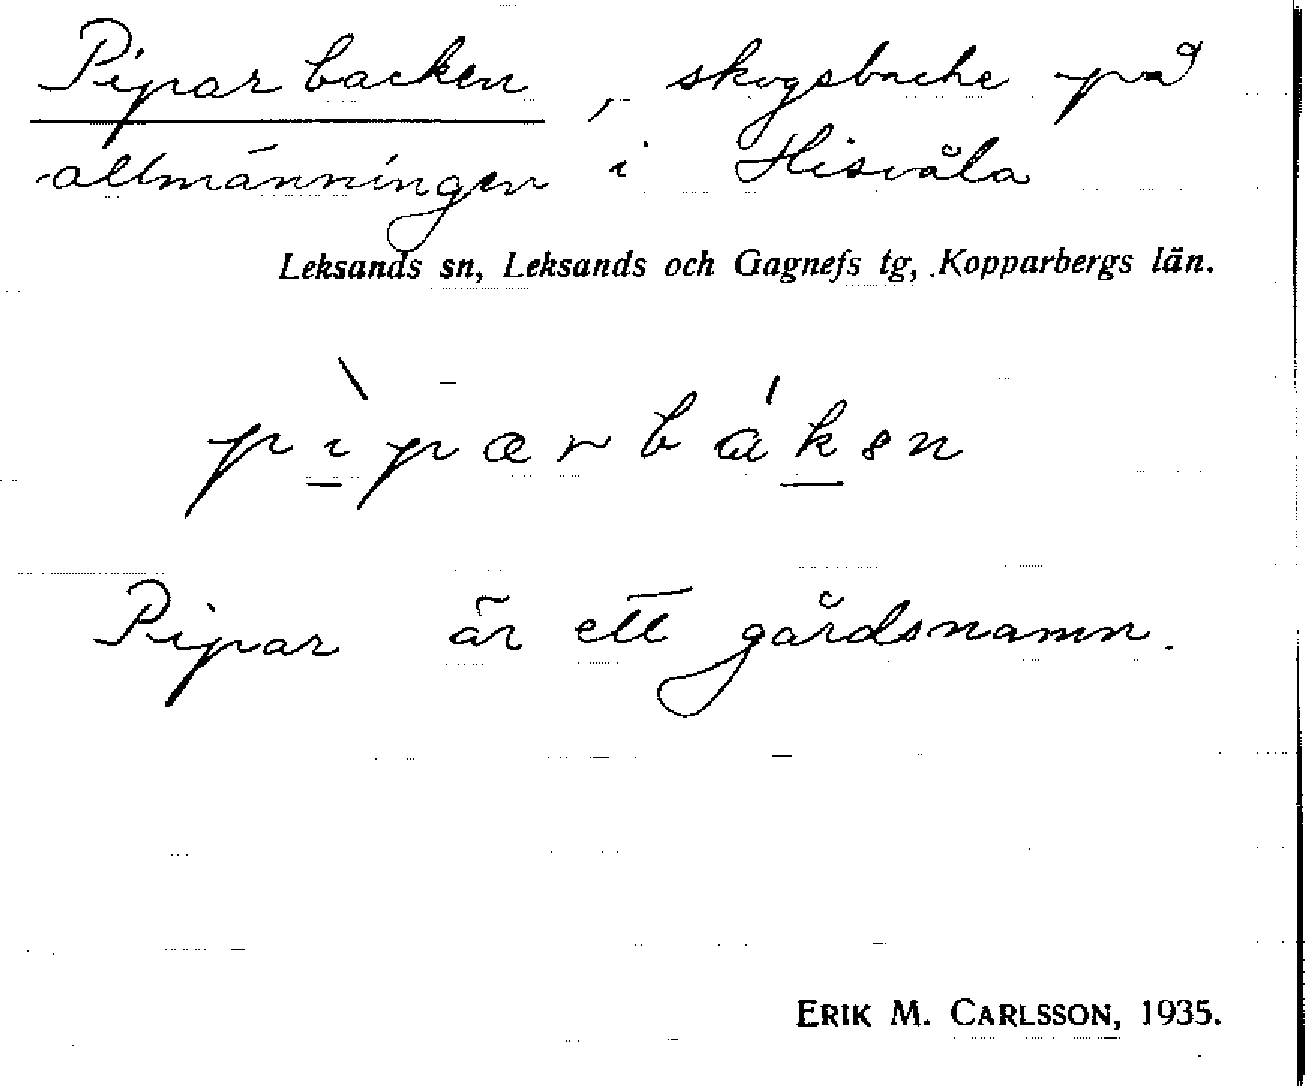 Piparbacken, skogsbacke på
allmänningen i Hisvåla
Leksands sn, Leksands och Gagnefs tg, Kopparbergs län.
Pipar är ett gårdsnamn.
ERIK M. CARLSSON, 1935.